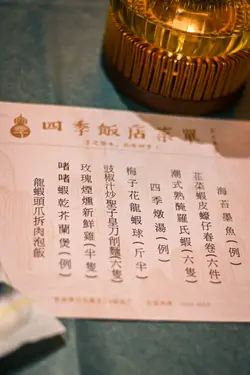 四季飯店菜單
海苔墨魚(例)
韮菜蝦皮蠔仔春卷(六件)
潮式熟醃羅氏蝦(六隻)
四季燉湯(例)
梅子花龍蝦球(斤半)
豉椒汁炒聖子皇刀削麵(六隻)
玫瑰煙燻新鮮雞(半隻)
啫啫蝦乾芥蘭煲(例)
龍蝦頭爪拆肉泡飯